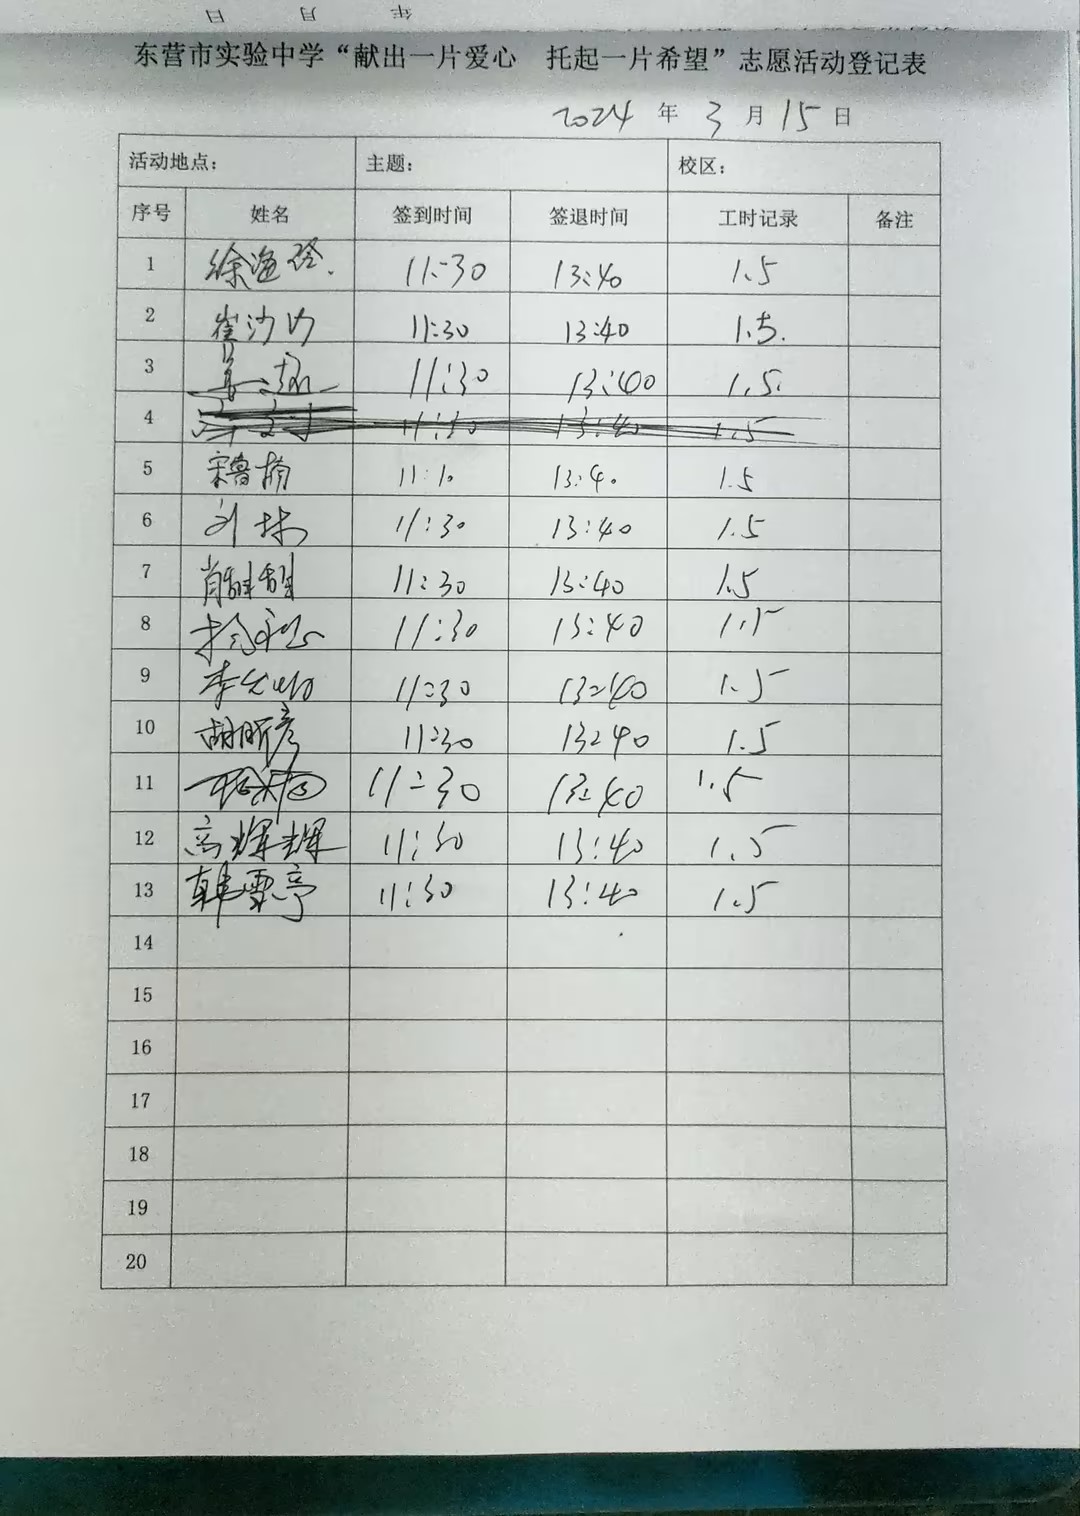 日 月 年
东营市实验中学“献出一片爱心 托起一片希望”志愿活动登记表
2024 年 3 月 15 日
活动地点: 主题: 校区:
序号 姓名 签到时间 签退时间 工时记录 备注
1 11:30 13:40 1.5
2 11:30 13:40 1.5.
3 11:30 13:40 1.5.
4 11:30 13:40 1.5
5 宋鲁楠 13:40 1.5
6 刘林 11:30 13:40 1.5
7 肖甜甜 11:30 13:40 1.5
8 11:30 13:40 1.5
9 11:30 13:40 1.5
10 胡昕彦 11:30 13:40 1.5
11 11:30 13:40 1.5
12 高辉辉 11:30 13:40 1.5
13 韩雪亭 11:30 13:40 1.5
14
15
16
17
18
19
20